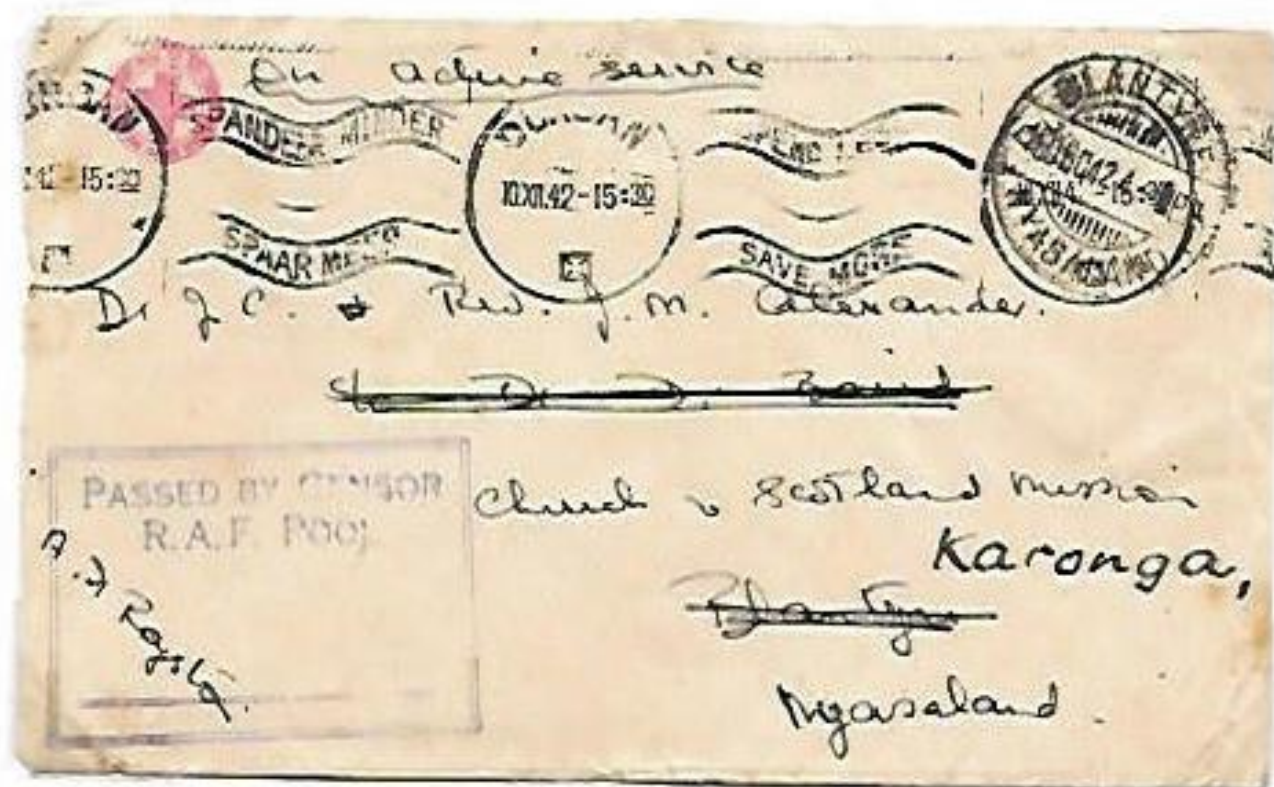 On active service
DURBAN
15:30
SPANDEER MINDER
SPAAR MEER
DURBAN
10XII.42-15:30
SPEND LESS
SAVE MORE
BLANTYRE
NYASALAND
Dr J.C. & Rev. J.M. Alexander.
c/o Dr D. Baird
PASSED BY CENSOR
R.A.F. POOL
Church of Scotland Mission
Karonga,
Blantyre
Nyasaland.